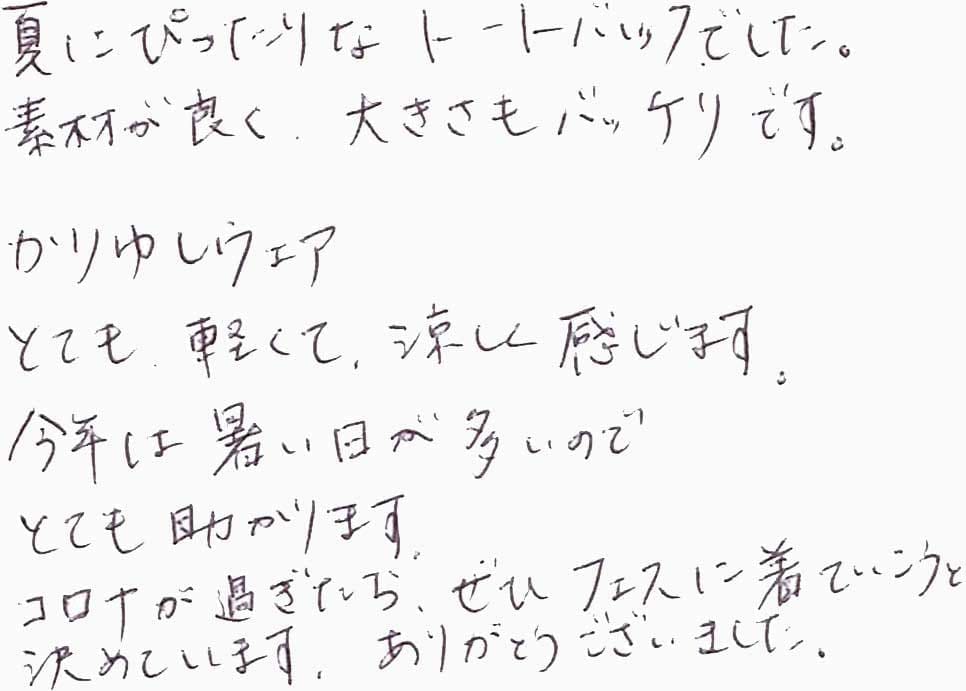 夏にぴったりなトートバックでした。
素材が良く、大きさもバッケリです。
かりゆしウェア
とても、軽くて、涼しく感じます。
今年は暑い日が多いので
とても助かります。
コロナが過ぎたら、ぜひフェスに着ていこうと
決めています。ありがとうございました。